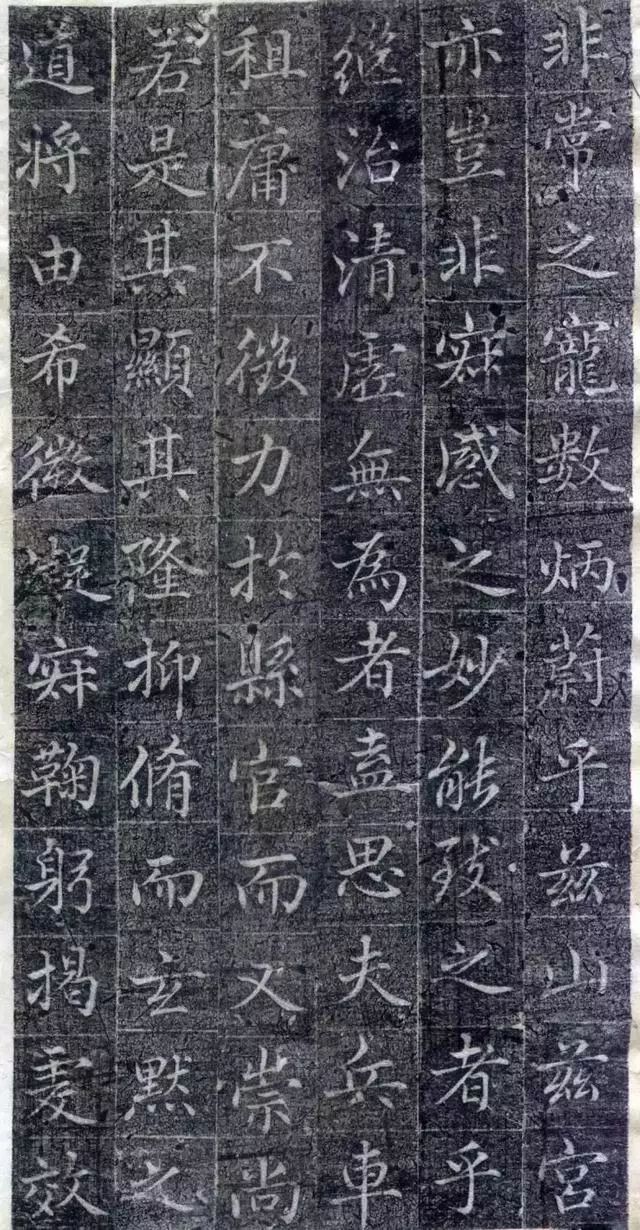 非常之寵數炳蔚乎茲山茲宮
亦豈非寂感之妙能致之者乎
繼治清虛無為者盍思夫兵車
租庸不徵力於縣官而又崇尚
若是其顯其隆抑脩而玄默之
道將由希微凝寂鞠躬揭虔效